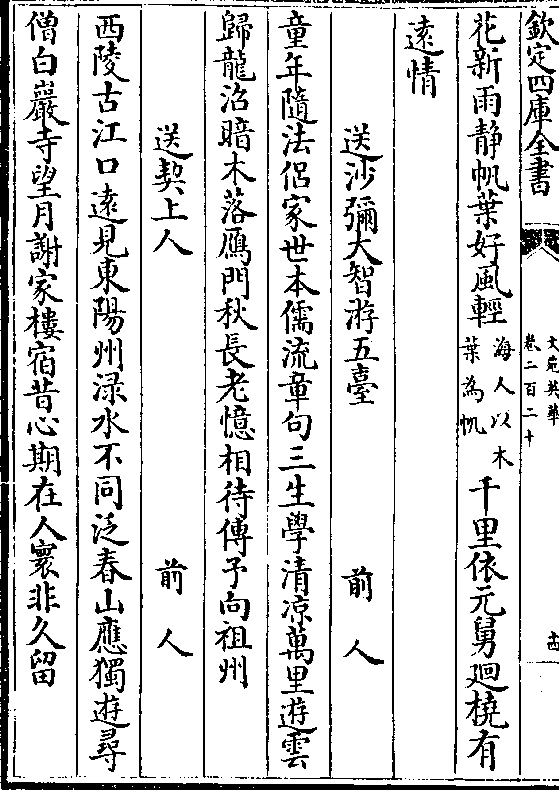 欽定四庫全書
文苑英華
卷二百二十
十四
花新雨静帆葉好風輕海人以木葉為帆千里依元舅廻橈有
逺情
送沙彌大智游五臺 前人
童年隨法侣家世本儒流章句三生學清凉萬里遊雲
歸龍沼暗木落鴈門秋長老憶相待傳予向祖州
送契上人 前人
西陵古江口逺見東陽州渌水不同泛春山應獨遊尋
僧白巖寺望月謝家樓宿昔心期在人寰非久留